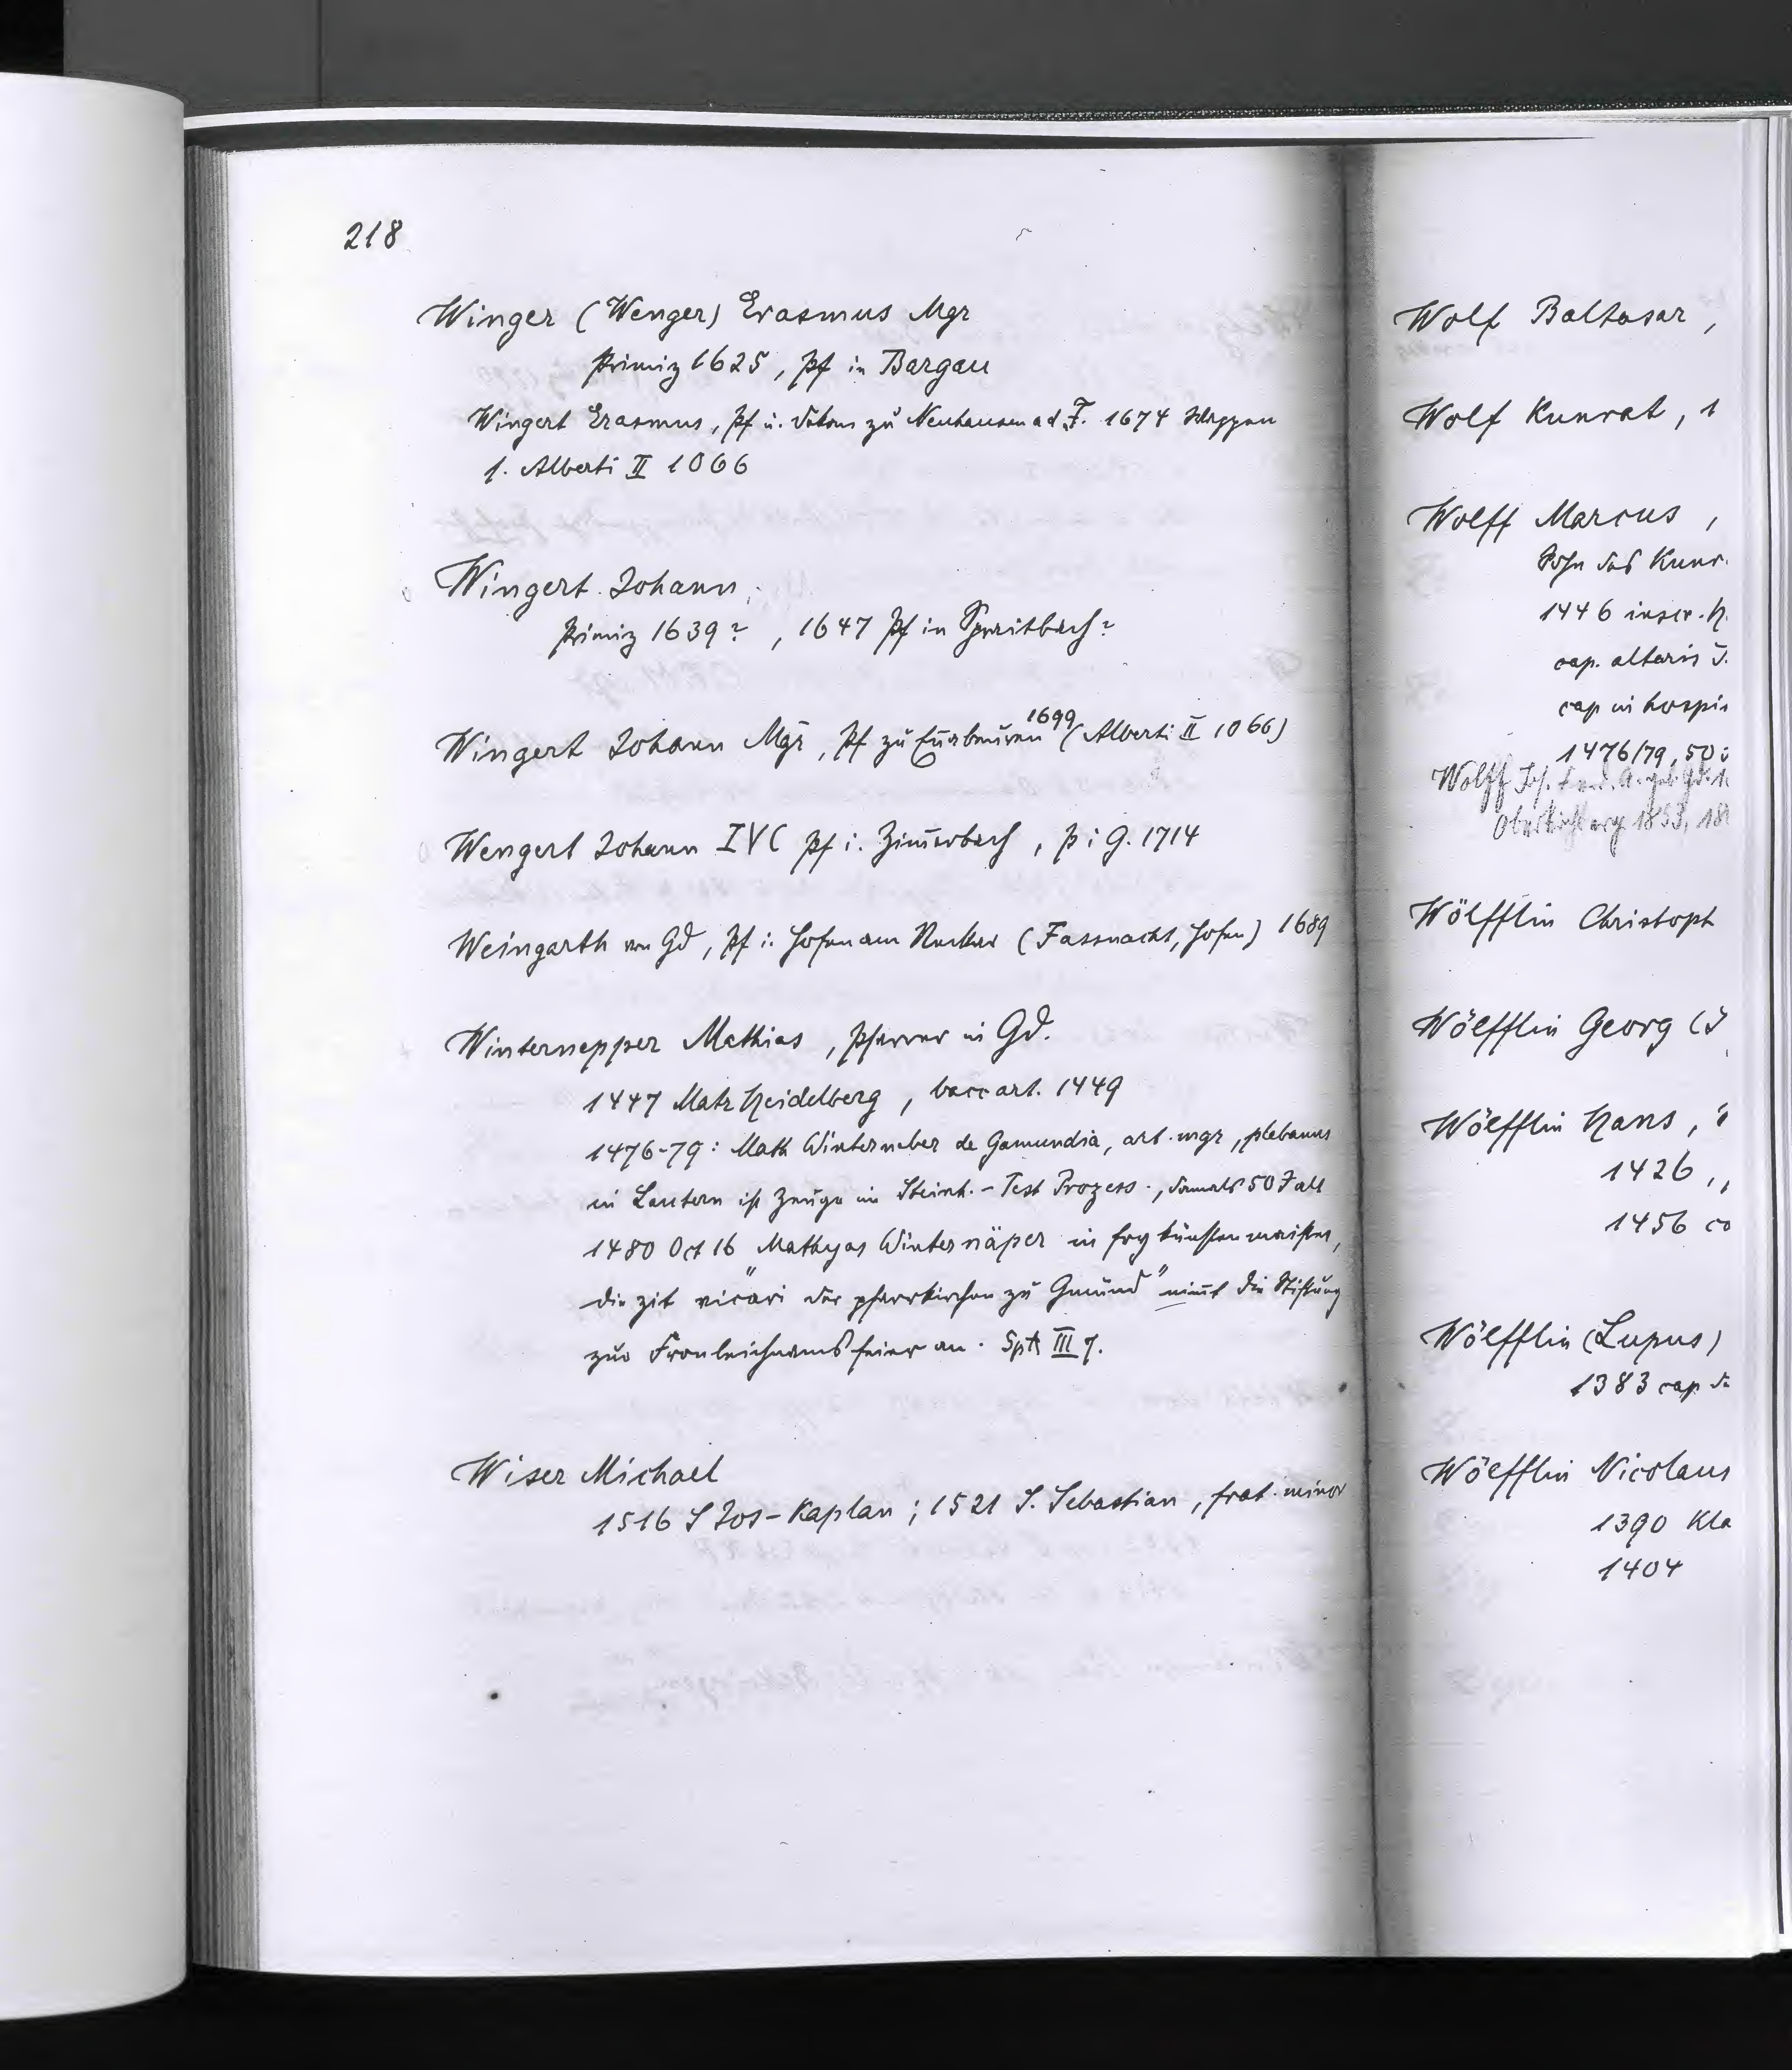 218
Winger (Wenger) Erasmus Mgr
Primiz 1625, Pf in Bargau
Wingert Erasmus, Pf u. Dekan zu Neuhausen a d F. 1674 Wappen
s. Alberti II 1066
Wingert Johann,
Primiz 1639?, 1647 Pf in Spraitbach?
Wingert Johann Mgr, Pf zu 1699 (Alberti II 1066)
Wengert Johann IVC Pf i. Zim̄erbach, P i G. 1714
Weingarth von Gd, Pf i. Hofen am Neckar (Fassnacht, Hofen) 1689
Winternepper Mathias, Pfarrer in Gd.
1447 Matr Heidelberg, bacc art. 1449
1476-79: Math Winterneber de Gamundia, art. mgr, plebanus
in Lautern ist Zeuge im Steinh.-Test Prozess, damals 50 J alt
1480 Oct 16 „Mathyas Winternäper in fry künsten maister,
die zit vicari der pfarrkirchen zu Gmünd" nim̄t die Stiftung
zur Fronleichnamsfeier an. SpA III 7.
Wiser Michael
1516 S Jos-Kaplan; 1521 S. Sebastian, frat. minor
Wolf Baltasar,
Wolf Kunrat, 1
Wolff Marcus,
Sohn des Kunr.
1446 inscr. H.
cap. altaris
cap in hospi
1476/79, 50
Wolff Jos.
Oberkirchberg 1853, 18
Wölfflin Christoph
Wölfflin Georg (
Wölfflin Hans,
1426,
1456 co
Wölfflin (Lupus)
1383 cap
Wölfflin Nicolaus
1390 Kla
1404